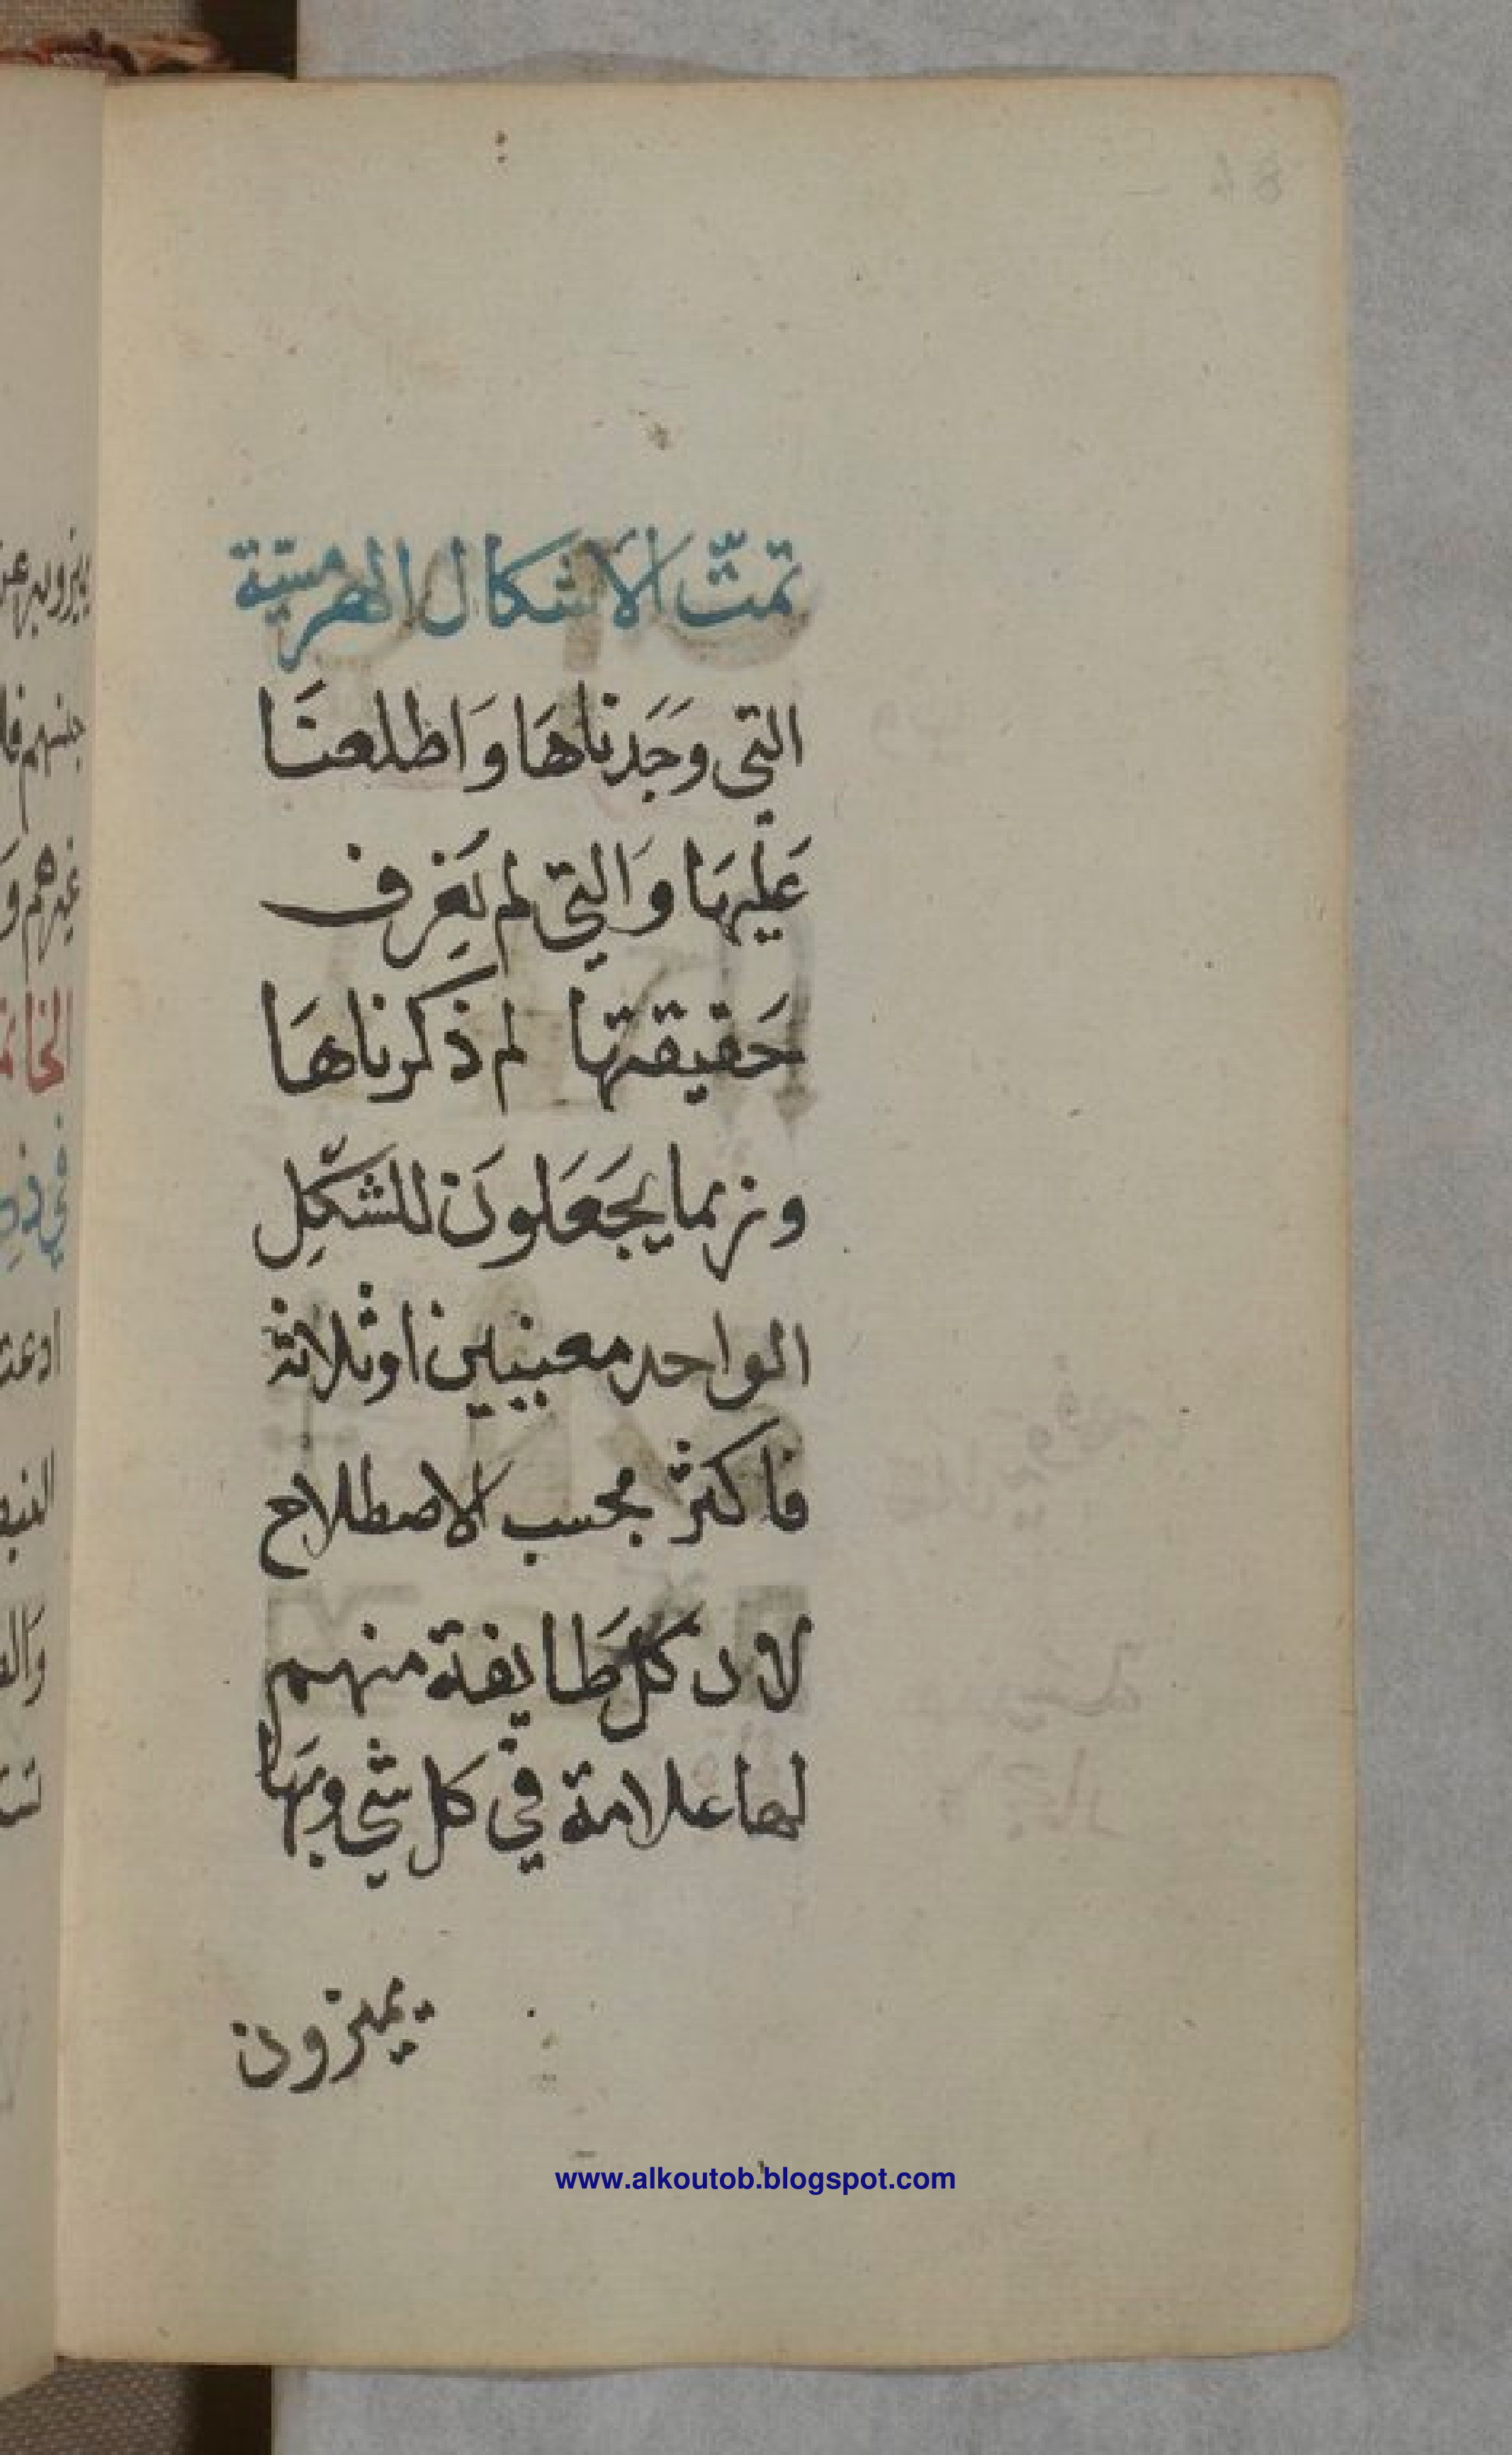 تمتّ الاشكال الهرمسيّة
التي وَجَدناهَا وَاطلعنَا
عَليهَا وَالتي لم يَعِرف
حَقيقتها لم ذكرناهَا
وربما يجَعَلونَ للشكّلِ
الواحد معنيين اوثلاثة
فاكثر بحسب الاصطلاح
لان كل طَايفة منهم
لها علامة في كل شي وبهَا
يميزون
www.alkoutob.blogspot.com